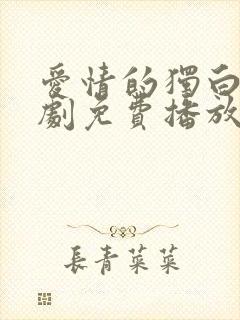 愛情的獨白
劇免費播放
長青菜菜